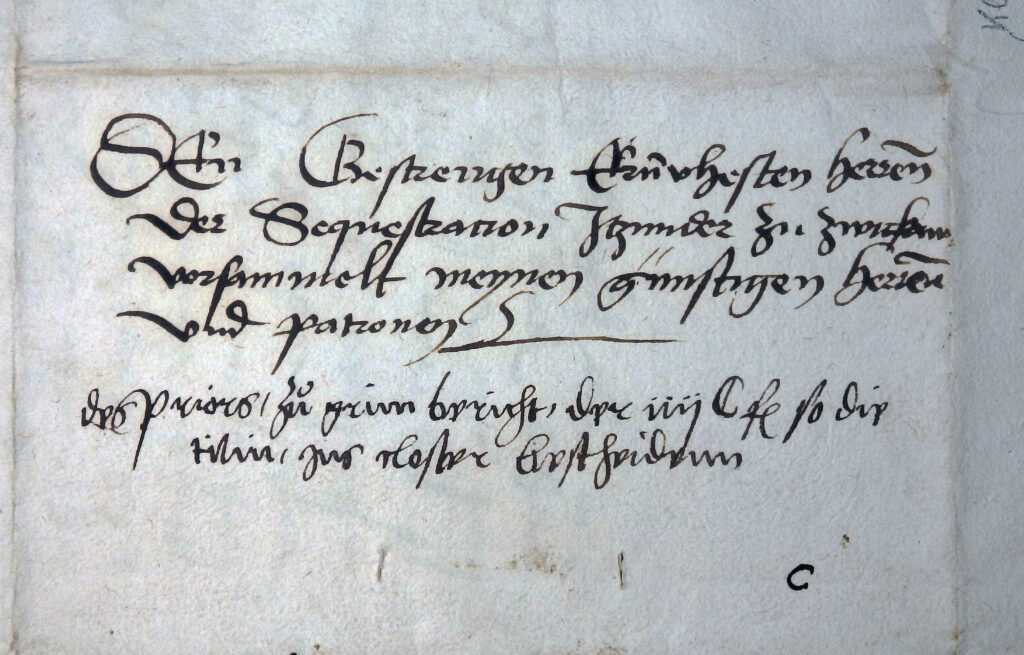 DEn Gestrengen Ernvhesten herrenn
der Sequestration Itzunder zu zwickaw
vorsammelt meynen günstigen herrenn
vnd patronen
des priors, zů grim bericht, der iiij C fl so die
ins closter bescheidenn
C